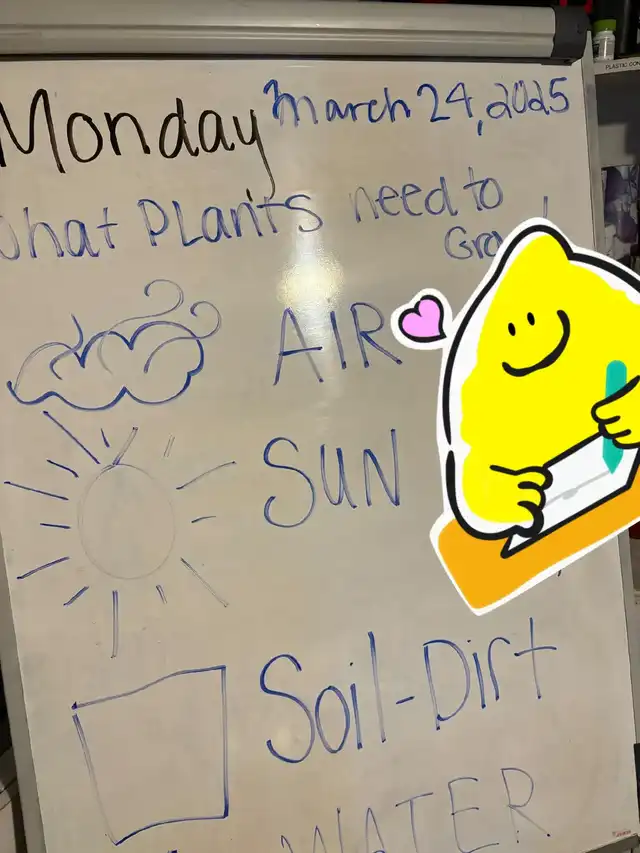 Monday March 24, 2025
What Plants need to
AIR
SUN
Soil-Dirt
WATER